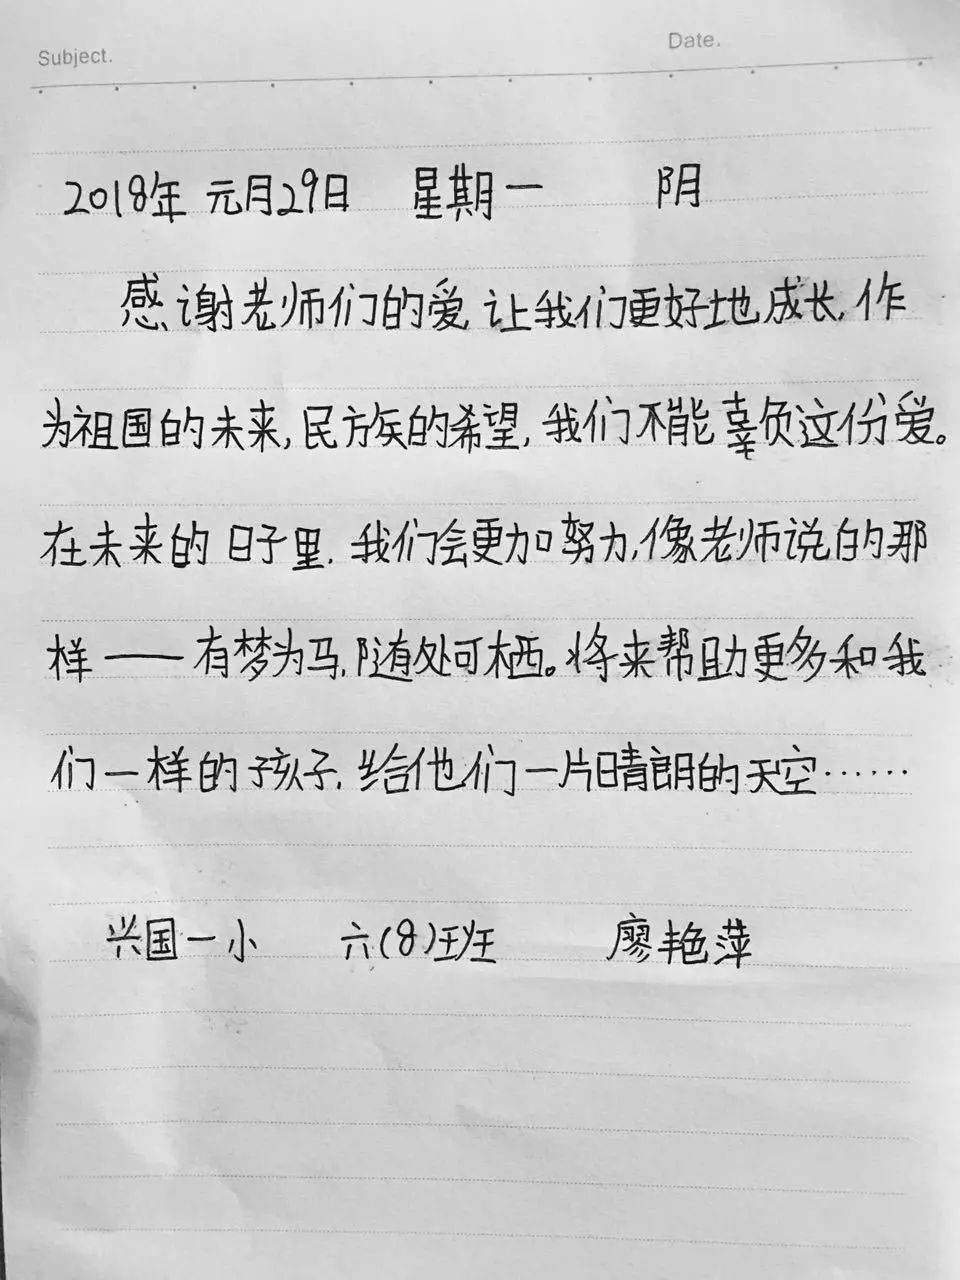 Subject.
Date.
2018年 元月29日 星期一 阴
感谢老师们的爱,让我们更好地成长,作
为祖国的未来,民方族的希望,我们不能辜负这份爱。
在未来的日子里,我们会更加努力,像老师说的那
样——有梦为马,随处可栖。将来帮助更多和我
们一样的孩子,给他们一片晴朗的天空……
兴国一小 六(8)班 廖艳萍